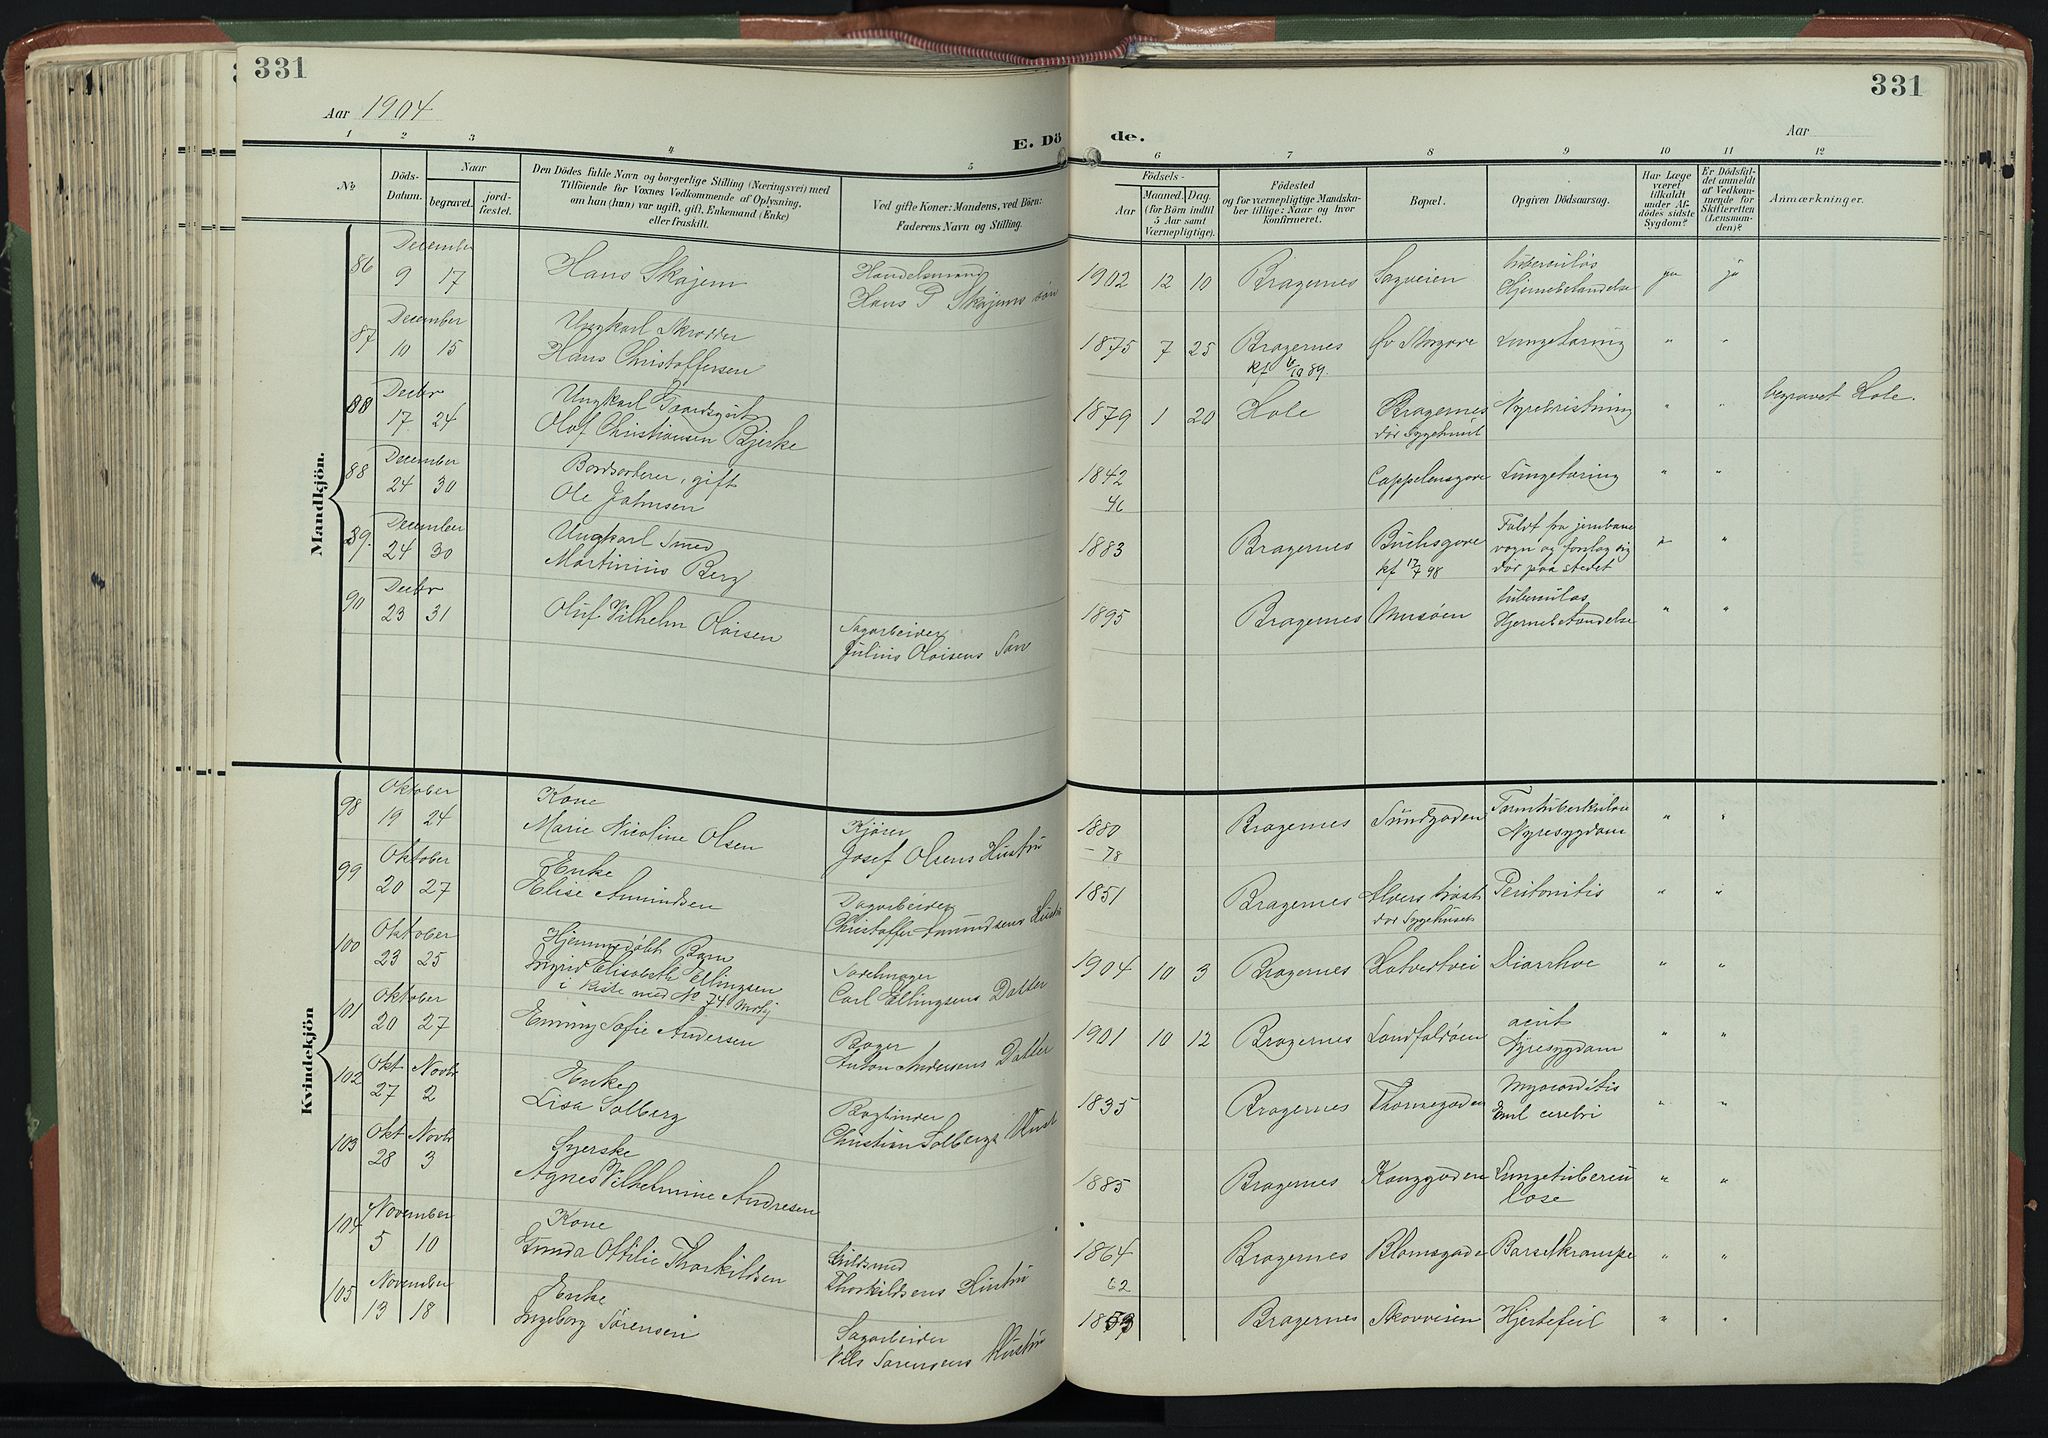 331
331
Aar 1904
E. Dö de.
Aar
1 2 3 4 5 6 7 8 9 10 11 12
No.
Döds-Datum.
Naar
begravet.
jord-fæstet.
Den Dödes fulde Navn og borgerlige Stilling (Næringsvei) med
Tilföiende for Voxnes Vedkommende af Oplysning,
om han (hun) var ugift, gift, Enkemand (Enke)
eller fraskilt.
Ved gifte Koner: Mandens, ved Börn:
Faderens Navn og Stilling.
Födsels-
Aar
Maaned. Dag.
(for Börn indtil
5 Aar samt
Værnepligtige).
Födested
og for værnepligtige Mandska-
ber tillige: Naar og hvor
konfirmeret.
Bopæl.
Opgiven Dödsaarsag.
Har Læge
været
tilkaldt
under Af-
dödes sidste
Sygdom?
Er Dödsfal-
det anmeldt
af Vedkom-
mende for
Skifteretten
(Lensman-
den)?
Anmærkninger.
Mandkjön.
86 December 9 17 Hans Skajem Handelsmand
Hans P Skajems sön 1902 12 10 Bragernes Sagveien tuberculøs
Hjernebetændelse ja ja
87 December 10 15 Ungkarl Skrædder
Hans Christoffersen 1875 7 25 Bragernes
kf 6/10 89. Øv Storgade Lungetæring " "
88 Decbr 17 24 Ungkarl Gaardsgut
Olof Christiansen Bjerke 1879 1 20 Hole Bragernes
dør Sygehuset Nyrebristning " " begravet Hole.
88 December 24 30 Bordsorterer, gift
Ole Johnsen 1842
46 Cappelensgade Lungetæring " "
89. December 24 30 Ungkarl Smed
Martinius Berg 1883 Bragernes Buchsgade
kf 17/4 98 Faldt fra jernbane
vogn og forslog sig
dør paa stedet " "
90 Decbr 23 31 Oluf Vilhelm Olaisen Sagarbeider
Julius Olaisens Søn 1895 Bragernes Musøen tuberculøs
Hjernebetændelse " "
Kvindekjön
98 Oktober 19 24 Kone
Marie Nicoline Olsen Kjører
Josef Olsens Hustru 1880
- 78 Bragernes Sundgaden Tarmtuberkulose
Nyresygdom " "
99 Oktober 20 27 Enke
Elise Amundsen Dagarbeider
Christoffer Amundsens Hustru 1851 Bragernes
dør Sygehuset Peritonitis " "
100 Oktober 23 25 Hjemmedøbt Barn
Ingrid Elisabeth Ellingsen
i kiste med No 74 Sadelmager
Carl Ellingsens Datter 1904 10 3 Bragernes Hotvedtvei Diarrhoe " "
101 Oktober 20 27 Emmy Sofie Andersen Bager
Anton Andersens Datter 1901 10 12 Bragernes Landfaldøen acut
Nyresygdom " "
102 Okt 27 Novbr 2 Enke
Lisa Solberg Bogbinder
Christian Solbergs Hust 1835 Bragernes Thornegaden Myocarditis
Eml cerebri " "
103 Okt 28 Novbr 3 Syerske
Agnes Vilhelmine Andresen 1885 Bragernes Konggaden Lungetubercu
lose " "
104 November 5 10 Kone
Gunda Ottilie Thorkildsen Guldsmed
Thorkildsens Hustru 1864
62 Bragernes Blomsgade Barselkrampe " "
105 November 13 18 Enke
Ingeborg Sørensen Sagarbeider
Nils Sørensens Hustru Bragernes Skovveien Hjertefeil " "